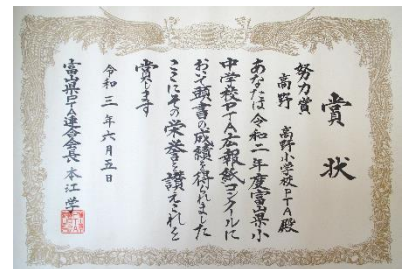 賞状
努力賞
高野 高野小学校PTA殿
あなたは令和二年度富山県小
中学校PTA広報紙コンクールに
おいて頭書の成績を得られました
ここにその栄誉を讃えこれを
賞します
令和三年六月五日
富山県PTA連合会会長 本江孝一